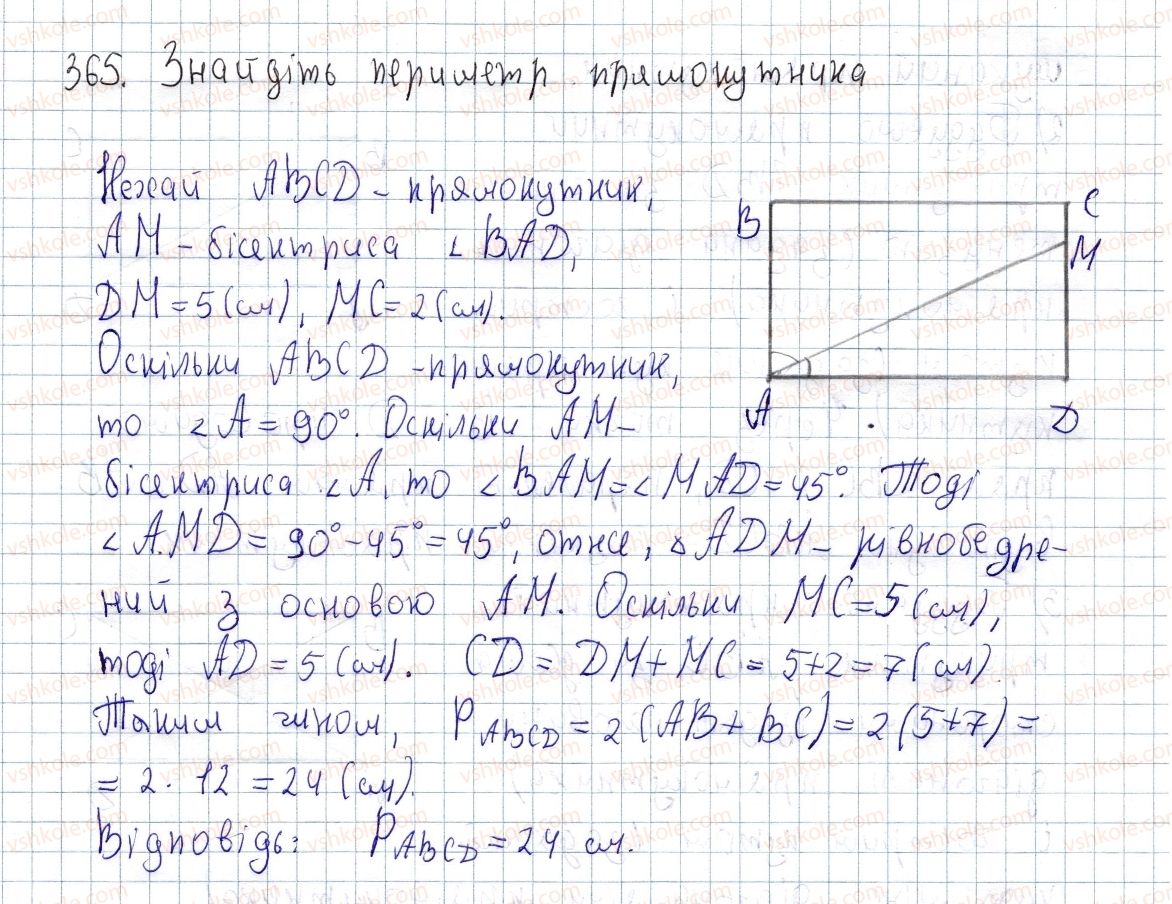 365. Знайдіть периметр прямокутника
Нехай ABCD - прямокутник,
AM - бісектриса ∠ BAD,
DM = 5 (см), MC = 2 (см).
Оскільки ABCD - прямокутник,
то ∠ A = 90°. Оскільки AM -
бісектриса ∠ A, то ∠ BAM = ∠ MAD = 45°. Тоді
∠ AMD = 90° - 45° = 45°, отже, △ ADM - рівнобедре-
ний з основою AM. Оскільки MC = 5 (см),
тоді AD = 5 (см). CD = DM + MC = 5 + 2 = 7 (см)
Таким чином, P ABCD = 2 (AB + BC) = 2 (5 + 7) =
= 2 · 12 = 24 (см).
Відповідь: P ABCD = 24 см.
B
C
M
A
D